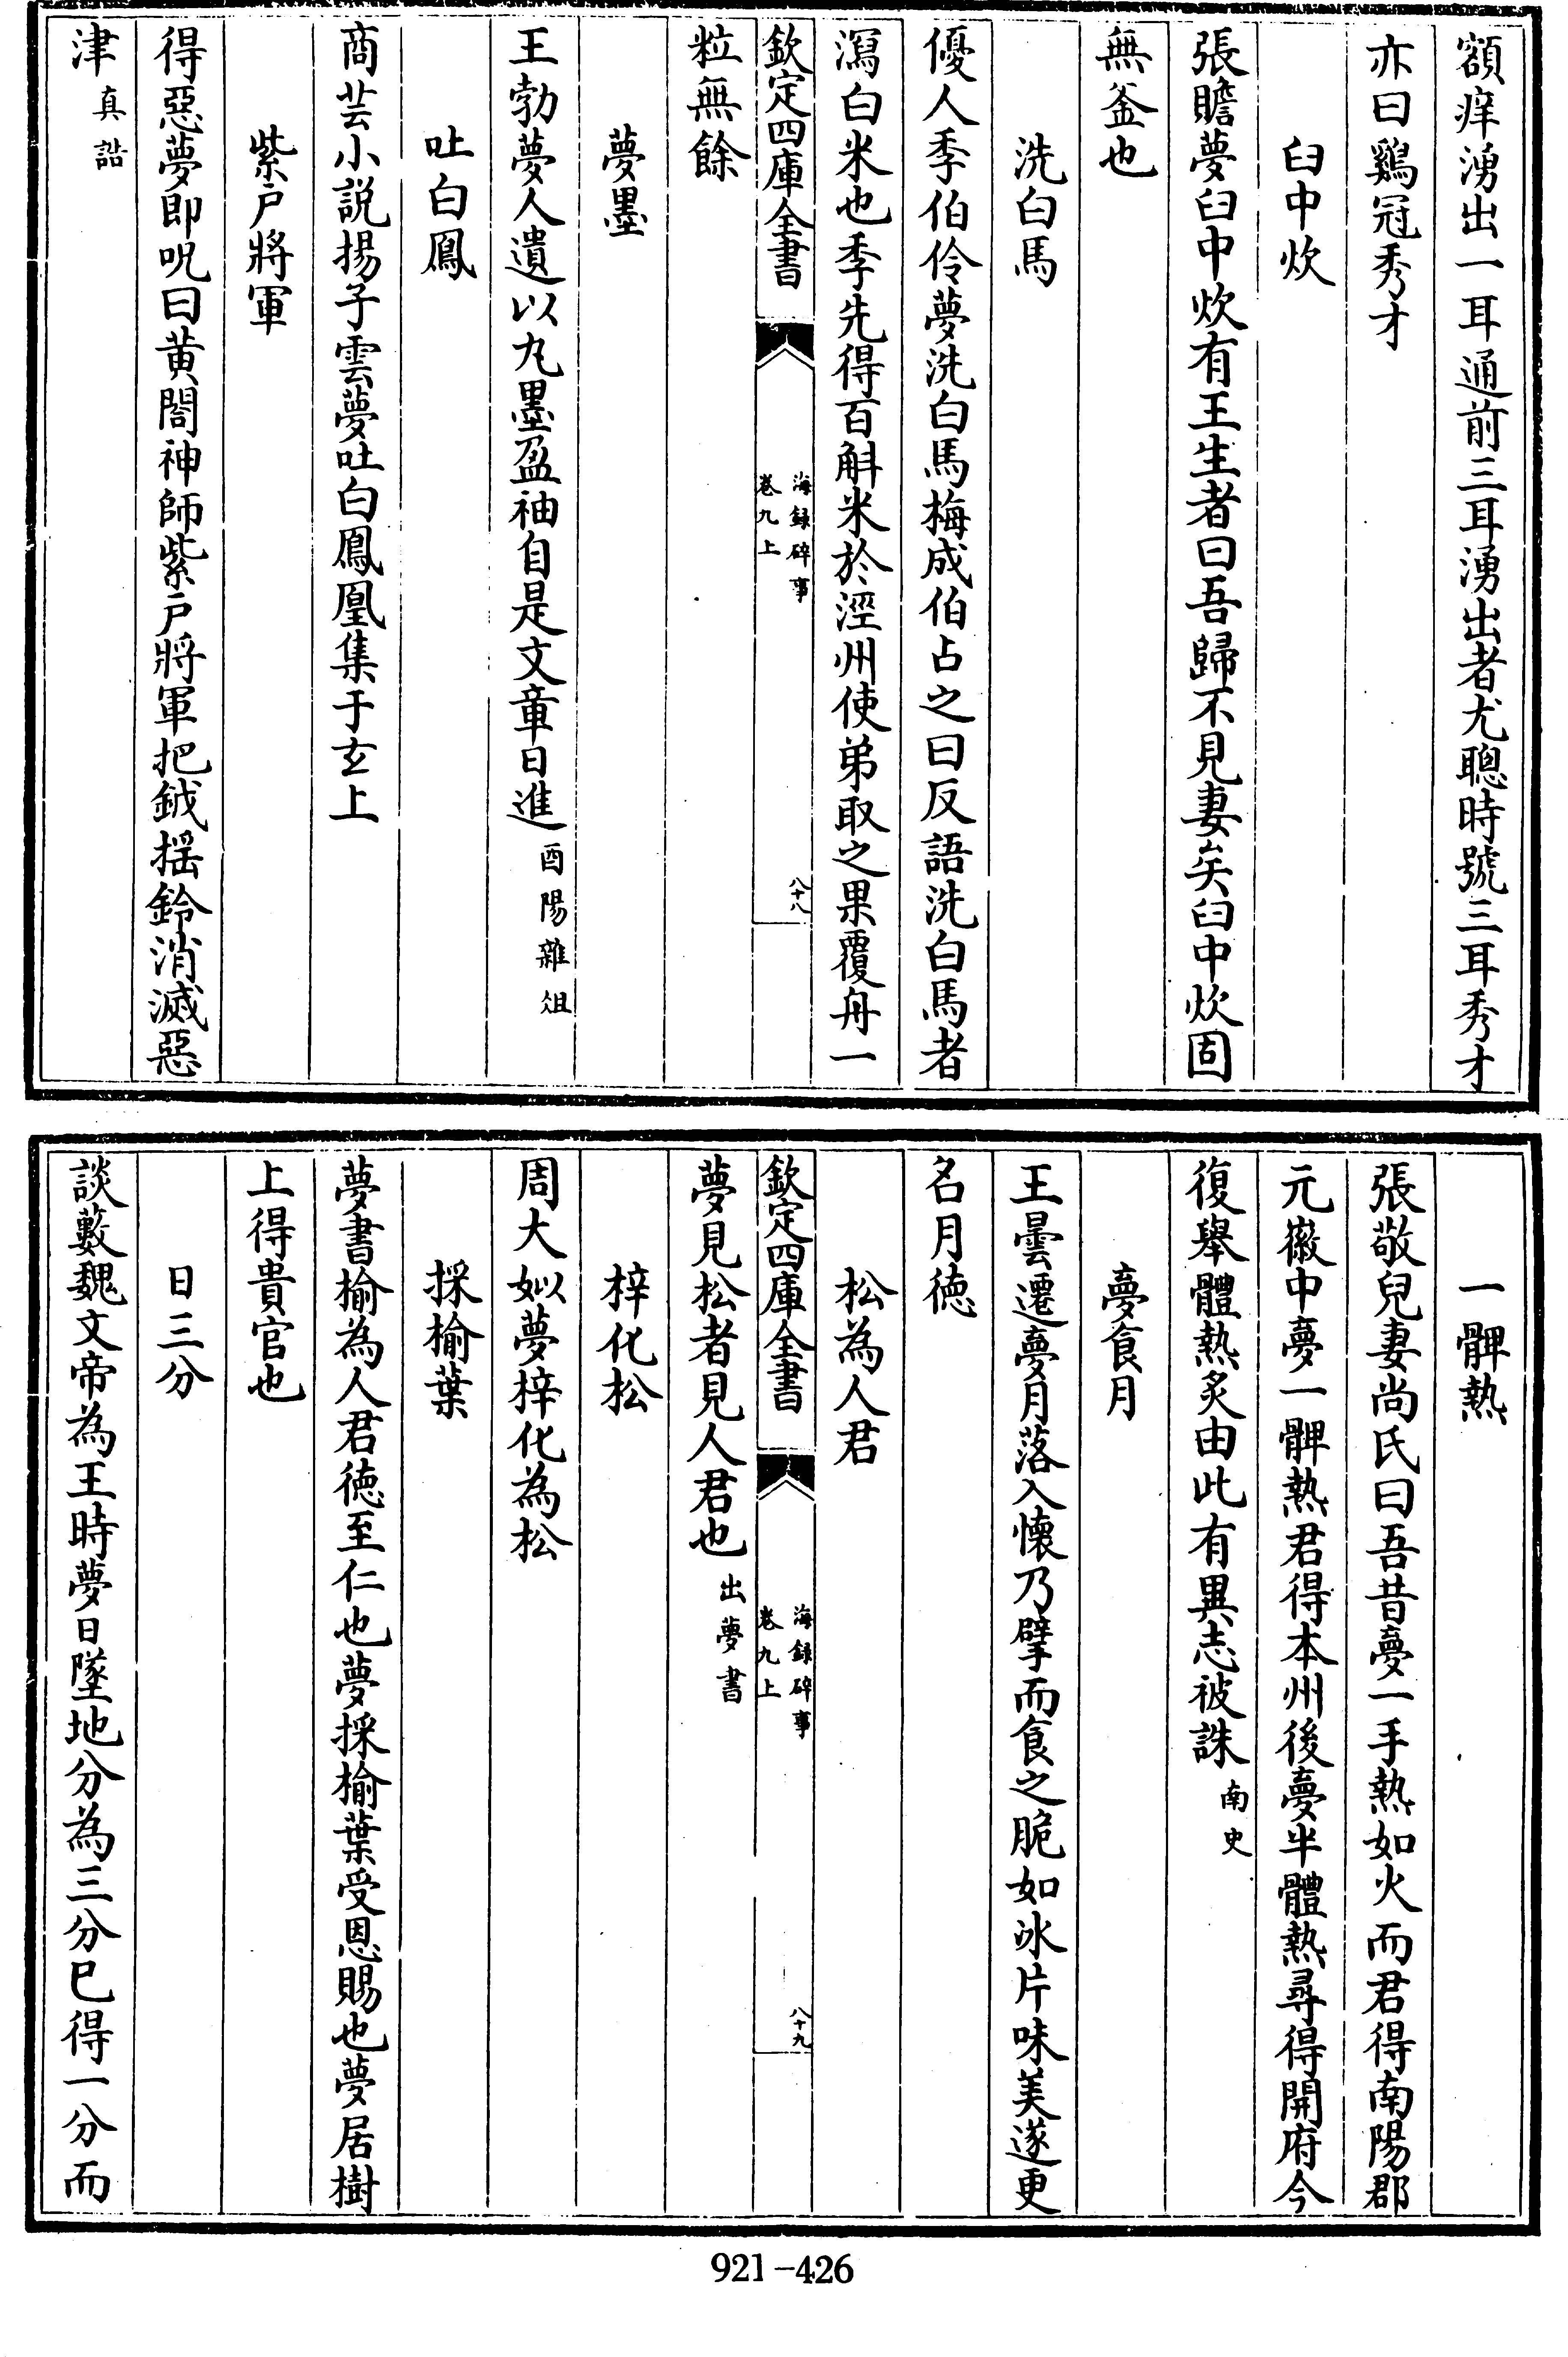 額痒湧出一耳通前三耳湧出者尤聰時號三耳秀才
亦曰鷄冠秀才
臼中炊
張瞻夢臼中炊有王生者曰吾歸不見妻矣臼中炊固
無釜也
洗白馬
優人季伯伶夢洗白馬梅成伯占之曰反語洗白馬者
瀉白米也季先得百斛米於涇州使弟取之果覆舟一
欽定四庫全書
海録碎事
卷九上
八十八
粒無餘
夢墨
王勃夢人遺以丸墨盈袖自是文章日進酉陽雜俎
吐白鳳
商芸小説揚子雲夢吐白鳳凰集于玄上
紫户將軍
得惡夢即呪曰黄閤神師紫户將軍把鉞揺鈴消滅惡
津真誥
一髀熱
張敬兒妻尚氏曰吾昔夢一手熱如火而君得南陽郡
元徽中夢一髀熱君得本州後夢半體熱尋得開府今
復舉體熱炙由此有異志被誅南史
夢食月
王曇遷夢月落入懐乃擘而食之脆如冰片味美遂更
名月徳
松為人君
欽定四庫全書
海録碎事
卷九上
八十九
夢見松者見人君也出夢書
梓化松
周大姒夢梓化為松
採榆葉
夢書榆為人君徳至仁也夢採榆葉受恩賜也夢居樹
上得貴官也
日三分
談藪魏文帝為王時夢日墜地分為三分巳得一分而
921-426